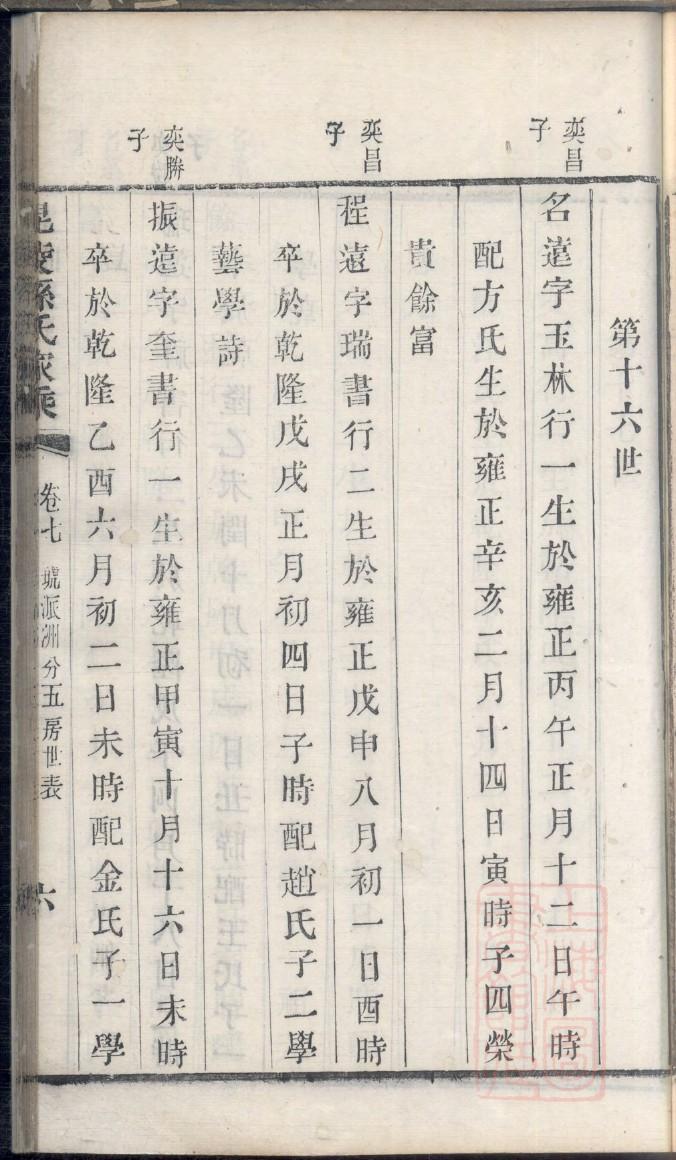 第十六世
奕昌
子
名遠字玉林行一生於雍正丙午正月十二日午時
配方氏生於雍正辛亥二月十四日寅時子四榮
貴餘富
奕昌
子
程遠字瑞書行二生於雍正戊申八月初一日酉時
卒於乾隆戊戌正月初四日子時配趙氏子二學
藝學詩
奕勝
子
振遠字奎書行一生於雍正甲寅十月十六日未時
卒於乾隆乙酉六月初二日未時配金氏子一學
毘陵孫氏家乘
卷七
號派洲分五房世表
六